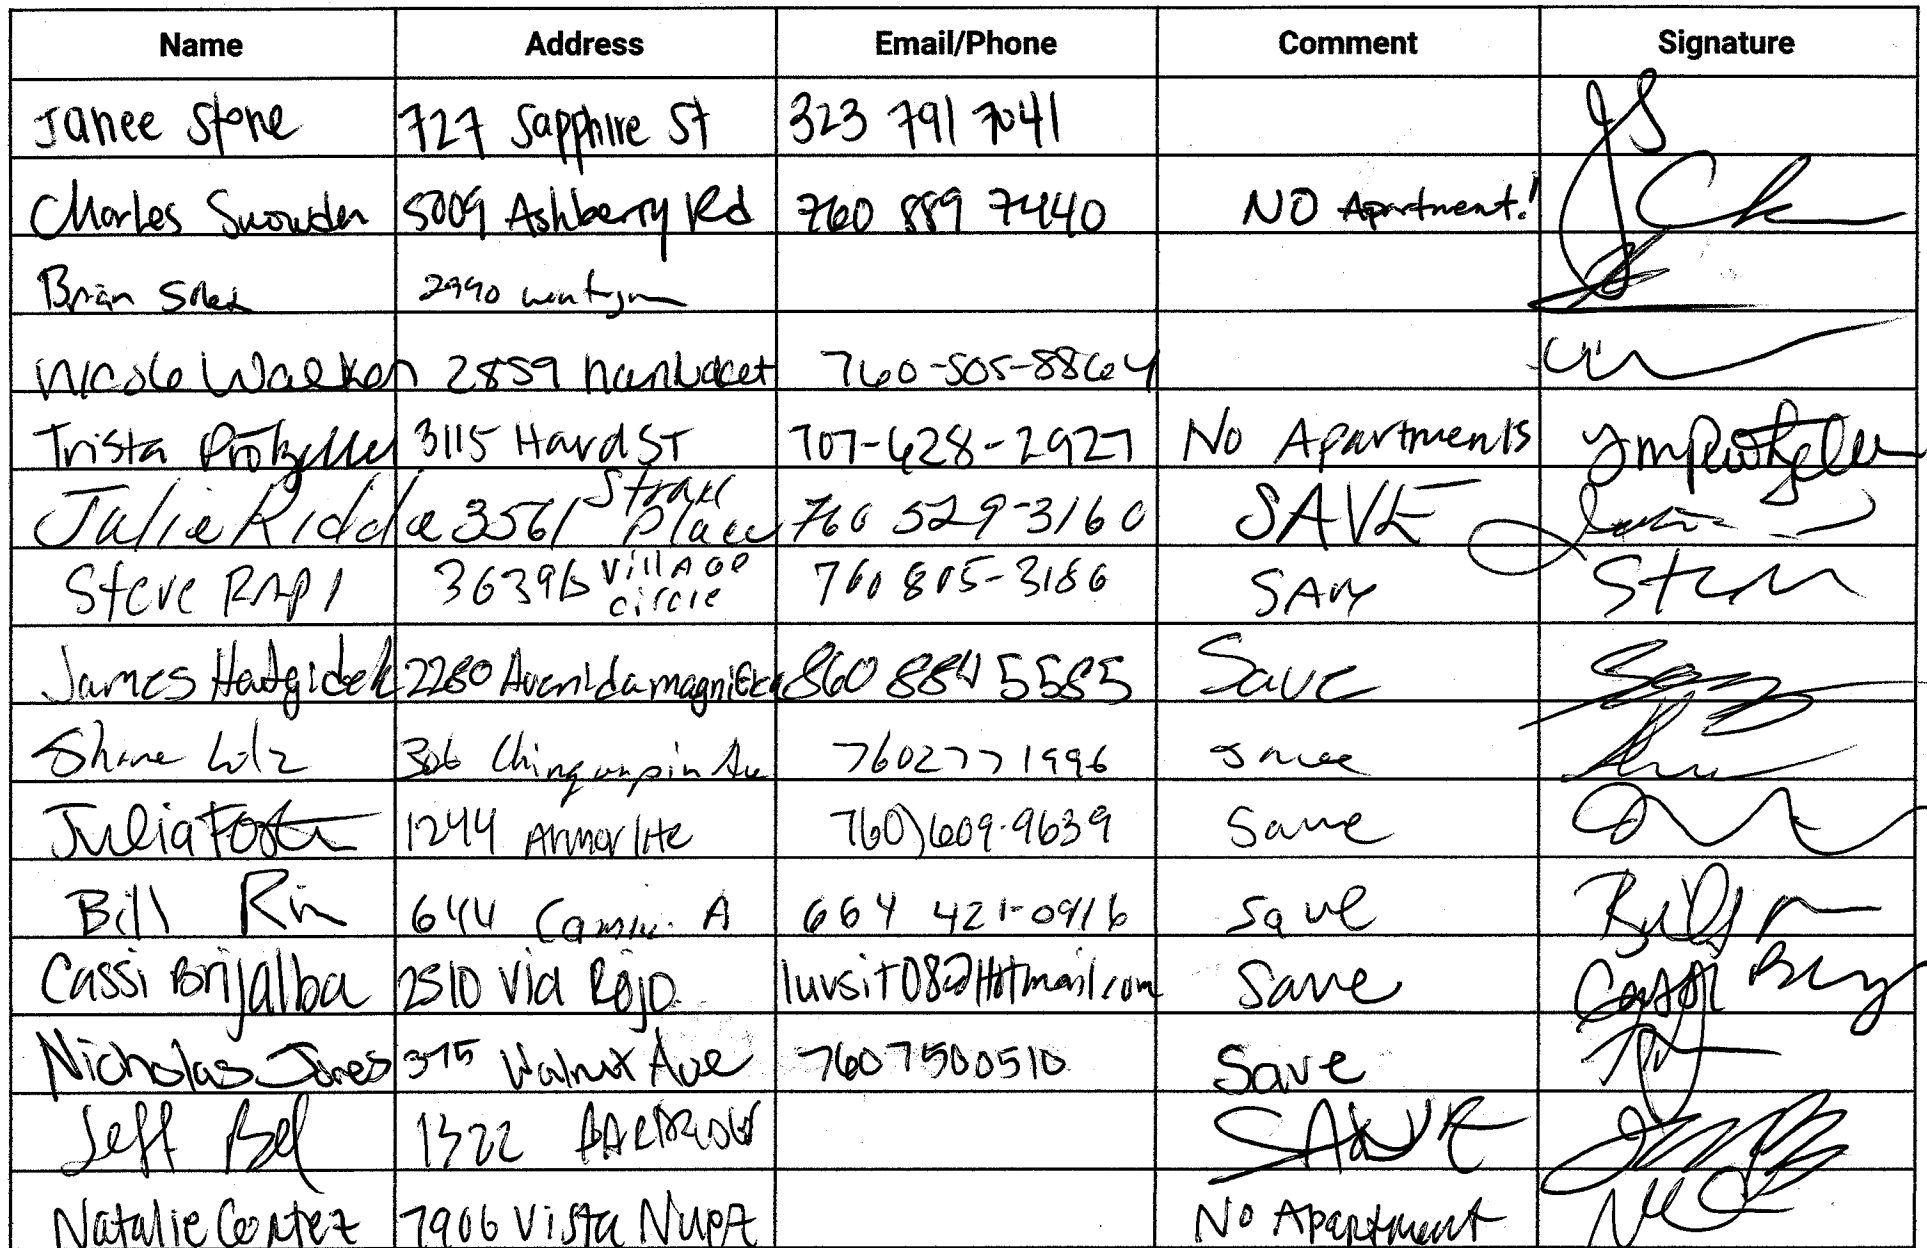 Name Address Email/Phone Comment Signature
Janee Stone 727 Sapphire St 323 791 7041
Charles Snowden 5009 Ashberry Rd 760 889 7440 NO Apartment!
Brian 2990
Nicole Walker 2859 760-505-8864
Trista 3115 Hard ST 707-628-2927 No Apartments
Julie Riddle 3561 Place 760 529-3160 SAVE
Steve 3639B Village circle 760 805-3186 SAVE
James 2280 Avenida 860 884 5585 Save
Shane 306 Chinquapin Av 760 277 1996 save
Julia Foster 1244 Armorlite 760) 609-9639 Save
Bill 644 A 664 421-0916 save
Cassi Brijalba 2510 Via Rojo luvsit08@Hotmail.com Save
Nicholas Jones 375 Walnut Ave 760 750 0510 Save
Jeff 1322 SAVE
Natalie Cortez 7906 Vista No Apartment